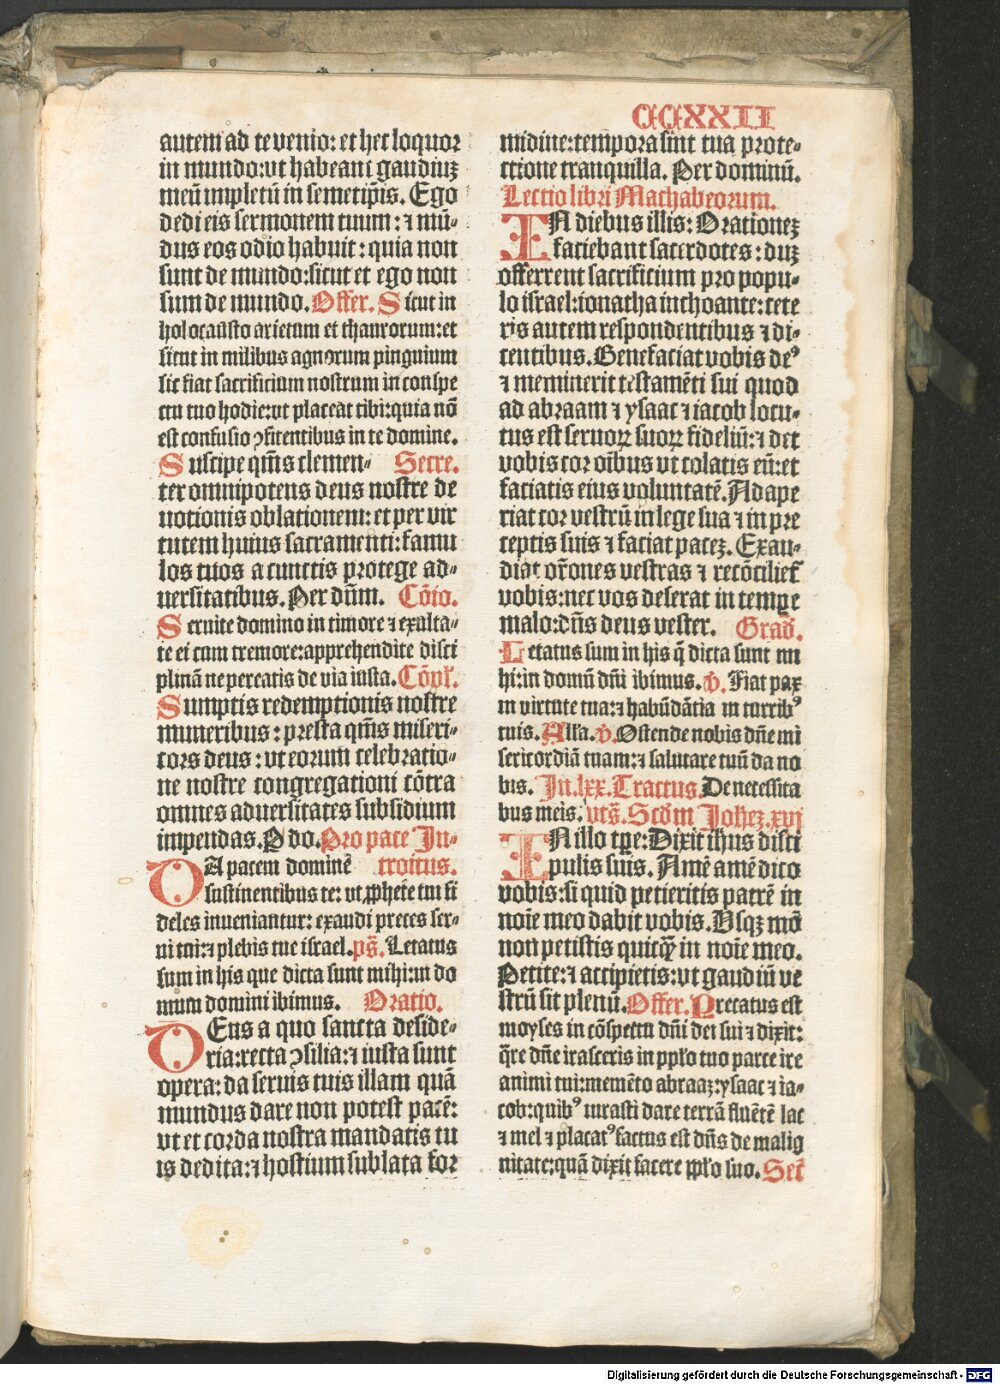 CCXXII
autem ad te venio: et hec loquor
in mundo: vt habeant gaudiuꝫ
meū impletū in semetip̄is. Ego
dedi eis sermonem tuum: ⁊ mū⸗
dus eos odio habuit: quia non
sunt de mundo: sicut et ego non
sum de mundo. Offer. Sicut in
holocausto arietum et thaurorum: et
sicut in milibus agnorum pinguium
sic fiat sacrificium nostrum in conspe
ctu tuo hodie: vt placeat tibi: quia nō
est confusio ꝯfitentibus in te domine.
Suscipe qm̄s clemen⸗ Secre.
ter omnipotens deus nostre de
uotionis oblationem: et per vir
tutem huius sacramenti: famu
los tuos a cunctis protege ad⸗
uersitatibus. Per dūm. Cōio.
Seruite domino in timore ⁊ exulta⸗
te ei cum tremore: apprehendite disci
plinā ne pereatis de via iusta. Cōpl̄.
Sumptis redemptionis nostre
muneribus: presta qm̄s miseri⸗
cors deus: vt eorum celebratio⸗
ne nostre congregationi cōtra
omnes aduersitates subsidium
impendas. P do. Pro pace In⸗
DA pacem domine troitus.
sustinentibus te: vt ꝓphete tui fi
deles inueniantur: exaudi preces ser⸗
ui tui: ⁊ plebis tue israel. ps̄. Letatus
sum in his que dicta sunt mihi: in do
mum domini ibimus. Oratio.
DEus a quo sancta deside⸗
ria: recta ꝯsilia: ⁊ iusta sunt
opera: da seruis tuis illam quā
mundus dare non potest pacē:
vt et corda nostra mandatis tu
is dedita: ⁊ hostium sublata for
midine: tempora sint tua prote⸗
ctione tranquilla. Per dominū.
Lectio libri Machabeorum.
IN diebus illis: Orationeꝫ
faciebant sacerdotes: duꝫ
offerrent sacrificium pro popu⸗
lo israel: ionatha inchoante: cete
ris autem respondentibus ⁊ di⸗
centibus. Benefaciat vobis deꝰ
⁊ meminerit testamēti sui quod
ad abraam ⁊ ysaac ⁊ iacob locu⸗
tus est seruoꝝ suoꝝ fideliū: ⁊ det
vobis cor oībus vt colatis eū: et
faciatis eius voluntatē. Adape
riat cor vestrū in lege sua ⁊ in pre
ceptis suis ⁊ faciat paceꝫ. Exau⸗
diat or̄ones vestras ⁊ recōcilief
vobis: nec vos deserat in tempe
malo: dn̄s deus vester. Grad̄.
Letatus sum in his q̄ dicta sunt mi
hi: in domū dn̄i ibimus. v̄. Fiat pax
in virtute tua: ⁊ habūdātia in turribꝰ
tuis. Alla. v̄. Ostende nobis dn̄e mi
sericordiā tuam: ⁊ salutare tuū da no
bis. In.lxx. Tractus. De necessita
bus meis. vts̄. Scd̄m Joheꝫ. xvj
IN illo tꝑe: Dixit ihus disci
pulis suis. Amē amē dico
vobis: si quid petieritis patrē in
noīe meo dabit vobis. Vsqꝫ mō
non petistis quicq̄ in noīe meo.
Petite: ⁊ accipietis: vt gaudiū ve
strū sit plenū. Offer. Precatus est
moyses in cōspectu dn̄i dei sui ⁊ dixit:
q̄re dn̄e irasceris in ppl̄o tuo parce ire
animi tui: memēto abraaꝫ: ysaac ⁊ ia⸗
cob: quibꝰ iurasti dare terrā fluētē lac
⁊ mel ⁊ placatꝰ factus est dn̄s de malig
nitate: quā dixit facere ppl̄o suo. Sec̄
Digitalisierung gefördert durch die Deutsche Forschungsgemeinschaft - DFG